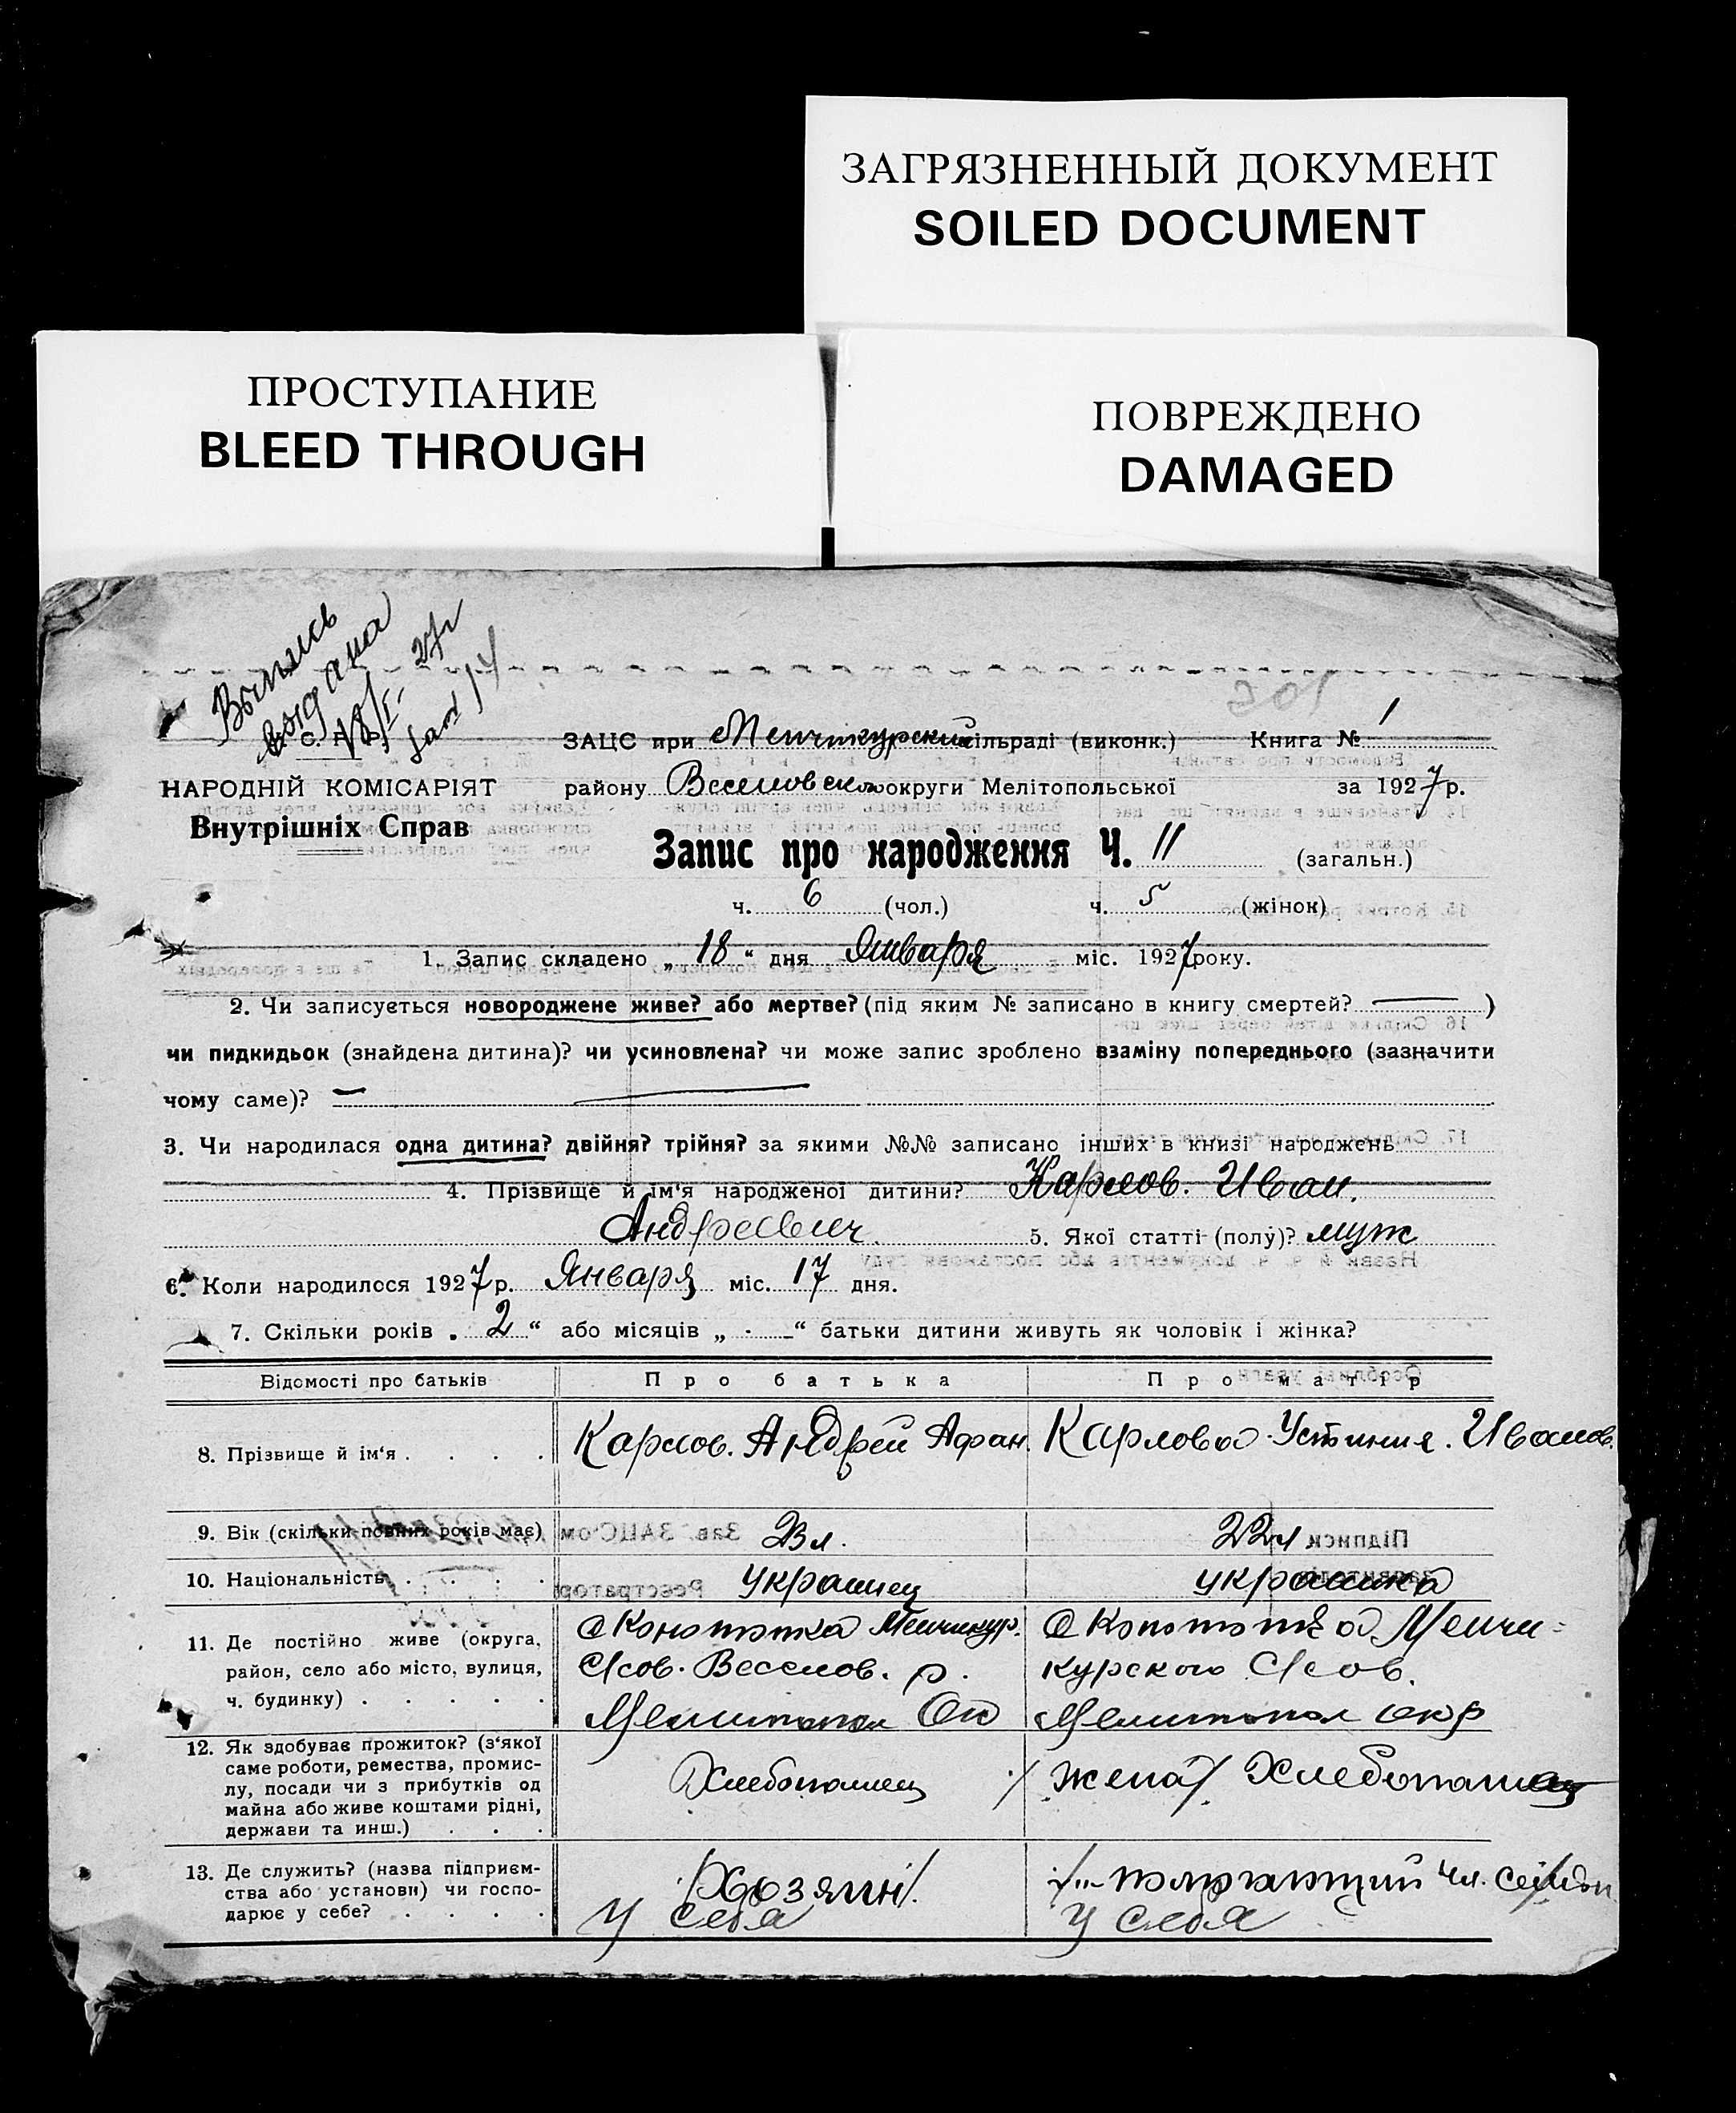 ЗАГРЯЗНЕННЫЙ ДОКУМЕНТ
SOILED DOCUMENT
ПРОСТУПАНИЕ
BLEED THROUGH
ПОВРЕЖДЕНО
DAMAGED
Выпись
выдана
18/I- 27г
НАРОДНІЙ КОМІСАРІЯТ
Внутрішніх Справ
ЗАЦС при Менчикурский сільраді (виконк.) Книга № 1
району Веселовско округи Мелітопольської за 1927 р.
Запис про народження Ч. 11 (загальн.)
ч. 6 (чол.) ч. 5 (жінок)
1. Запис складено „ 18 “ дня Января міс. 1927 року.
2. Чи записується новороджене живе? або мертве? (під яким № записано в книгу смертей? — )
чи пидкидьок (знайдена дитина)? чи усиновлена? чи може запис зроблено взаміну попереднього (зазначити
чому саме)? —
3. Чи народилася одна дитина? двійня? трійня? за якими №№ записано інших в книзі народжень
4. Прізвище й ім'я народженої дитини? Карлов. Иван.
Андреевич. 5. Якої статті (полу)? муж
6. Коли народилося 1927 р. Января міс. 17 дня.
7. Скільки років „ 2 “ або місяців „ - “ батьки дитини живуть як чоловік і жінка?
Відомості про батьків Про батька Про матір
8. Прізвище й ім'я . . . . Карлов. Андрей Афан. Карлова Устиния. Иванов.
9. Вік (скільки повних років має) 23 л. 22 л
10. Національність . . . . украинец украинка
11. Де постійно живе (округа, район, село або місто, вулиця, ч. будинку) . . . . .
с Конотопка Менчикур.
С/сов. Веселов. р.
Мелитопол Ок
с Конотопка Менчи-
курского С/сов.
Мелитопол окр
12. Як здобуває прожиток? (з'якої саме роботи, ремества, промислу, посади чи з прибутків од майна або живе коштами рідні, держави та инш.) . . .
Хлебопашец
/жена/ Хлебопашец
13. Де служить? (назва підприємства або установи) чи господарює у себе? . . . .
/Хозяин/.
у себя
/помогающий чл. семьи
у себя